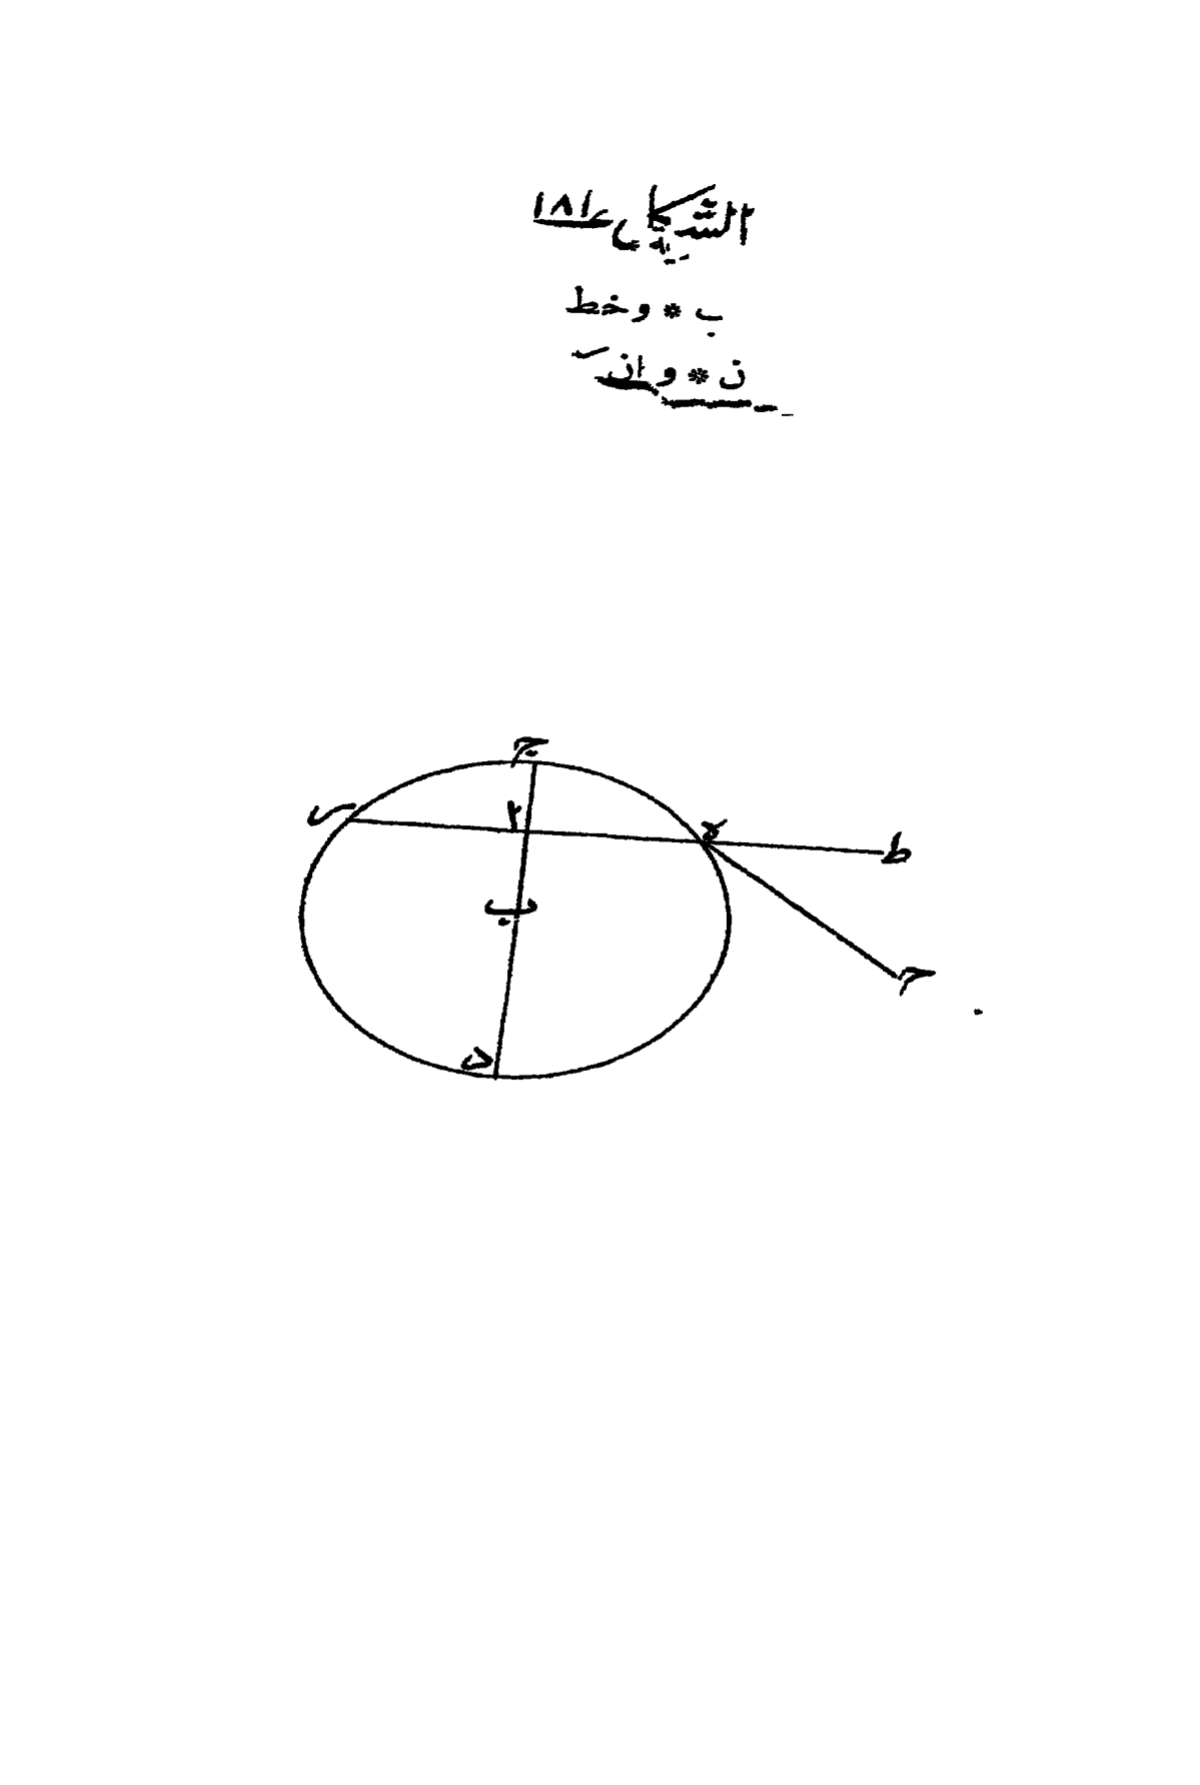 الشكل ١٨١
ب * وخط
ن * وان
ج
ر
ا
ه
ط
ب
ح
د